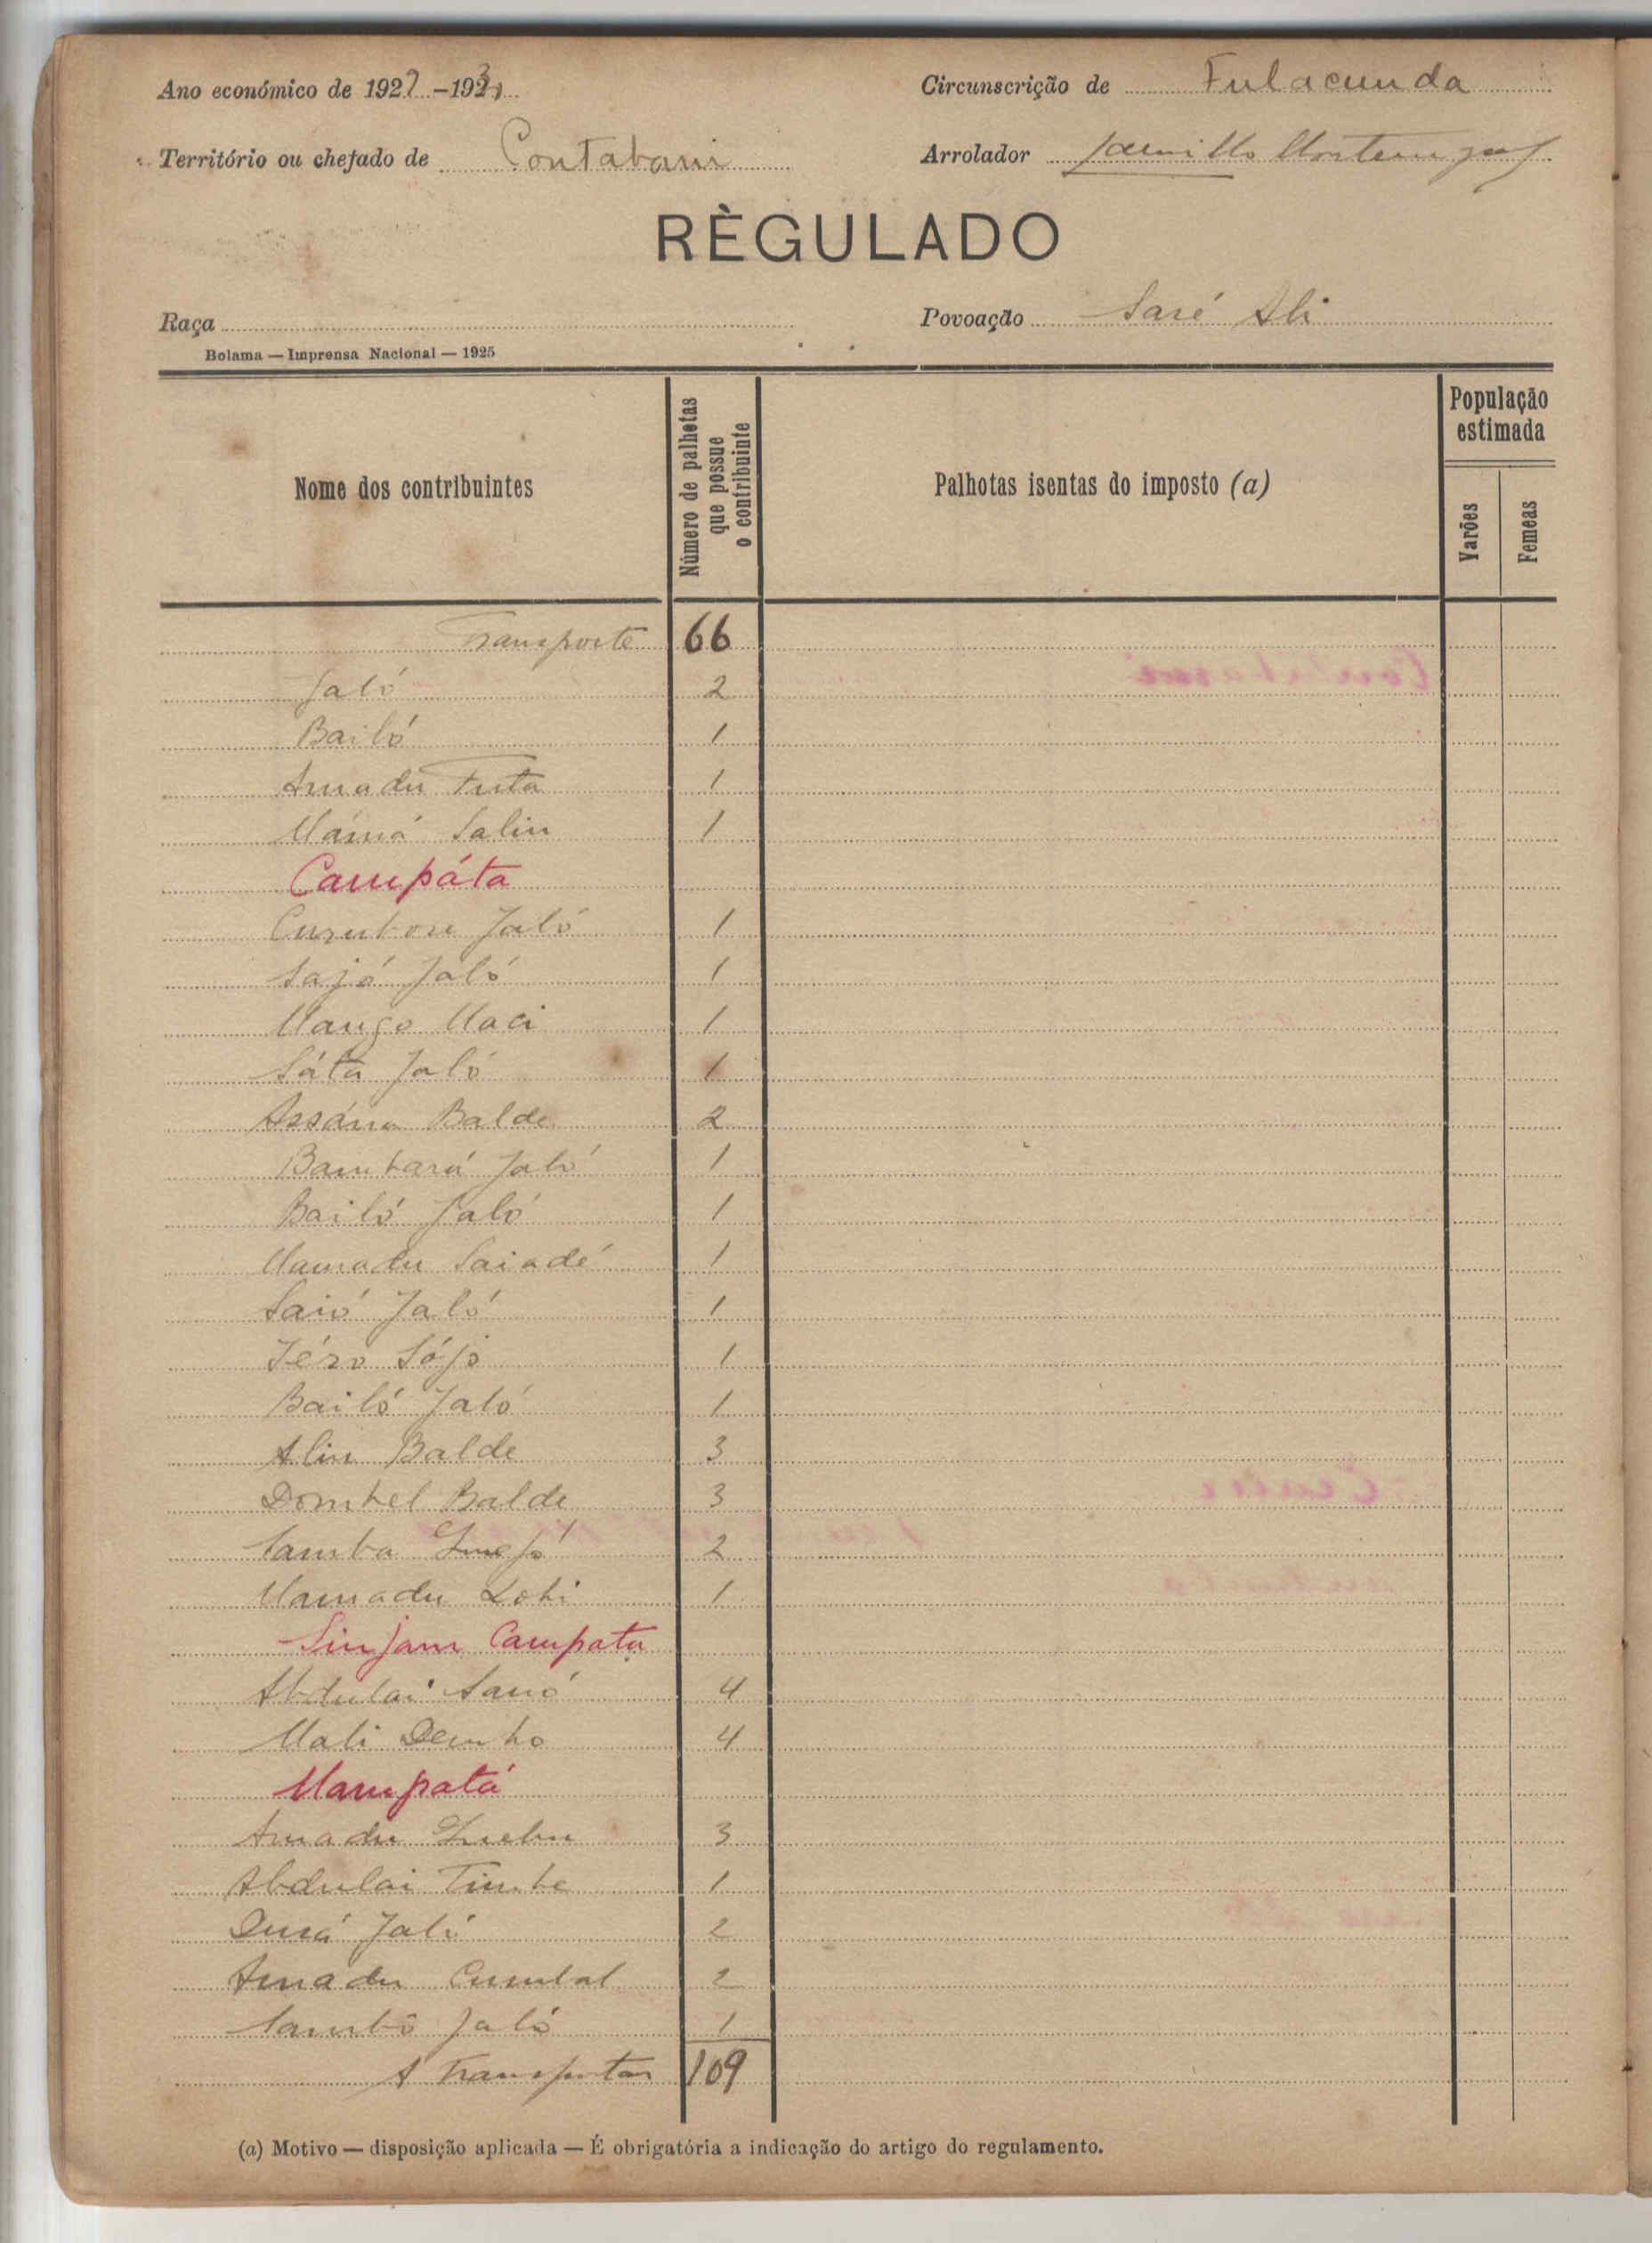 Ano económico de 1927–193
Circunscrição de Fulacunda
Território ou chefado de Contabani
Arrolador
RÈGULADO
Raça
Povoação Saré Ali
Bolama — Imprensa Nacional — 1925
Nome dos contribuintes
Número de palhotas que possue o contribuinte
Palhotas isentas do imposto (a)
População estimada
Varões
Femeas
Transporte 66
Jaló 2
Bailó 1
Amadu Futa 1
Mámá Saliu 1
Campáta
Jaló 1
Sajó Jaló 1
Mango Maci 1
Sáta Jaló 1
Assána Balde 2
Bambará Jaló 1
Bailó Jaló 1
Mamadu Saiadé 1
Saió Jaló 1
Téro Sójo 1
Bailó Jaló 1
Aliu Balde 3
Dombel Balde 3
Samba 2
Mamadu Lobi 1
Sinjam Campata
Abdulai Sanó 4
Mali Dembo 4
Mampatá
Amadu Guebu 3
Abdulai Timbe 1
Jaló 2
Amadu Cumbal 2
Sambó Jaló 1
A Transportar 109
(a) Motivo — disposição aplicada — É obrigatória a indicação do artigo do regulamento.